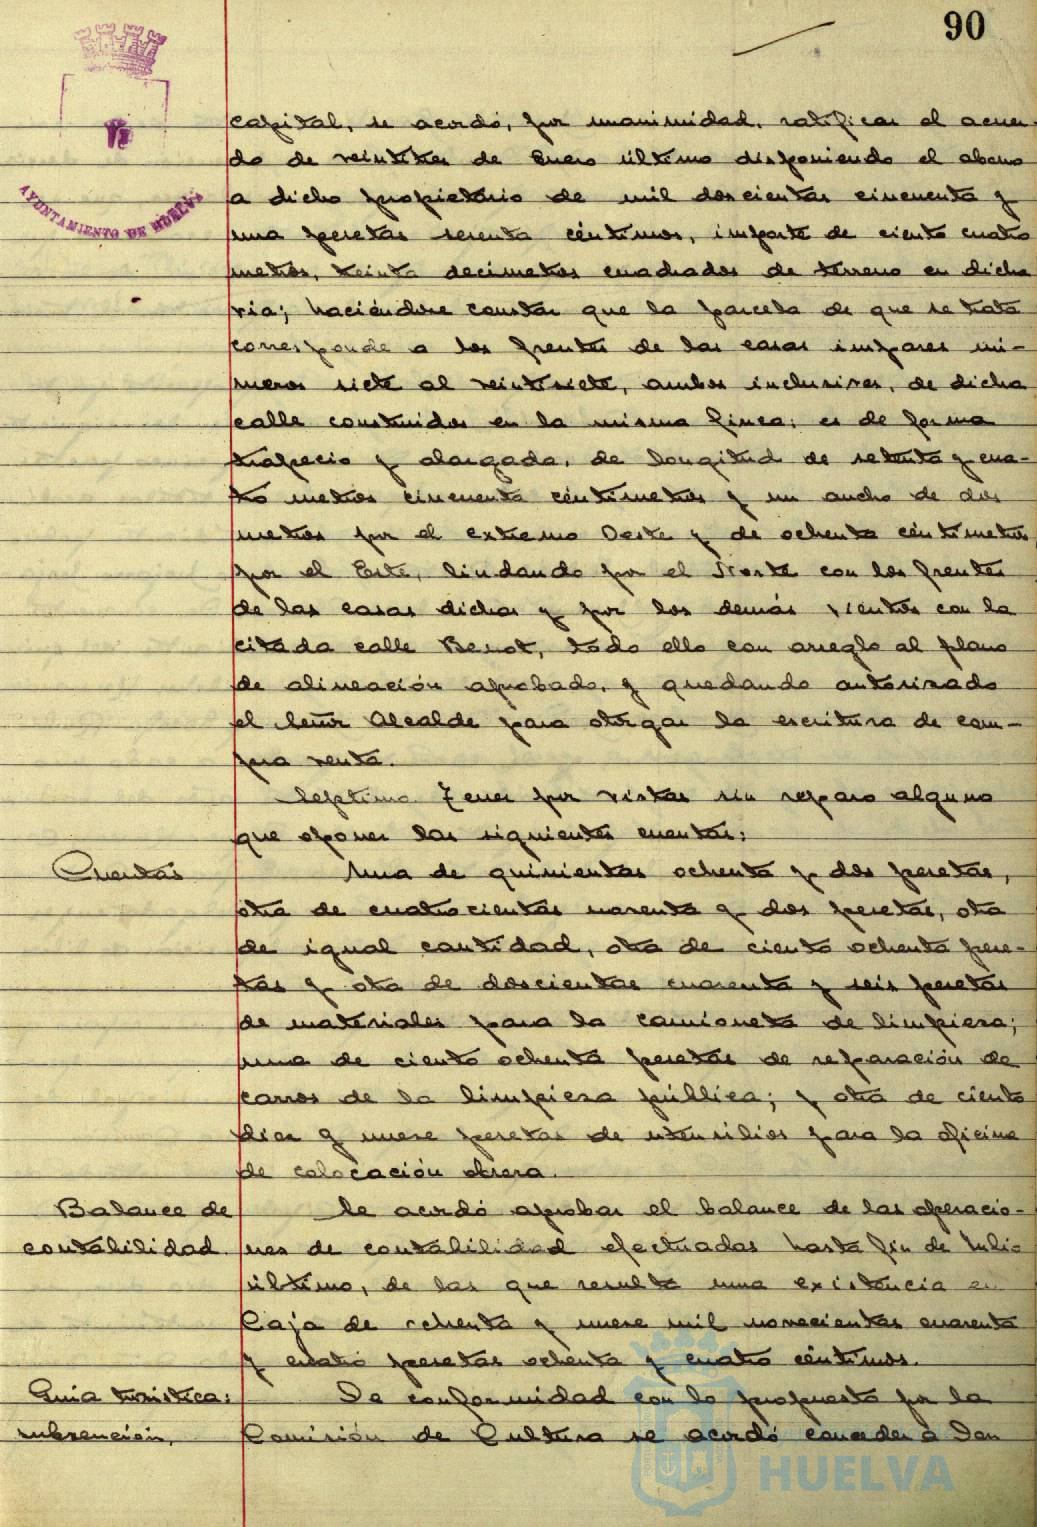 90
AYUNTAMIENTO DE HUELVA
capital, se acordó, por unanimidad, ratificar el acuer-
do de veintitres de Enero último disponiendo el abono
a dicho propietario de mil doscientas cincuenta y
una pesetas sesenta céntimos, importe de ciento cuatro
metros, treinta decimetros cuadrados de terreno en dicha
via; haciéndose constar que la parcela de que se trata
corresponde a los frentes de las casas impares nú-
meros siete al veintisiete, ambos inclusives, de dicha
calle construidos en la misma linea; es de forma
trapecio y alargada, de longitud de setenta y cua-
tro metros cincuenta céntimetros y un ancho de dos
metros por el extremo Oeste y de ochenta céntimetros
por el Este, lindando por el Norte con los frentes
de las casas dichas y por los demás vientos con la
citada calle Benot, todo ello con arreglo al plano
de alineación aprobado, y quedando autorizado
el Señor Alcalde para otorgar la escritura de com-
pra venta.
Septimo. Tener por vistas sin reparo alguno
que oponer las siguientes cuentas:
Cuentas
Una de quinientas ochenta y dos pesetas,
otra de cuatrocientas noventa y dos pesetas, otra
de igual cantidad, otra de ciento ochenta pese-
tas y otra de doscientas cuarenta y seis pesetas
de materiales para la camioneta de limpieza;
una de ciento ochenta pesetas de reparación de
carros de la limpieza pública; y otra de ciento
diez y nueve pesetas de utensilios para la oficina
de colocación obrera.
Balance de
contabilidad
Se acordó aprobar el balance de las operacio-
nes de contabilidad efectuadas hasta fin de Julio
último, de las que resulta una existencia en
Caja de ochenta y nueve mil novecientas cuarenta
y cuatro pesetas ochenta y cuatro céntimos.
Guia turistica:
subvención.
De conformidad con lo propuesto por la
Comisión de Cultura se acordó conceder a Don
HUELVA